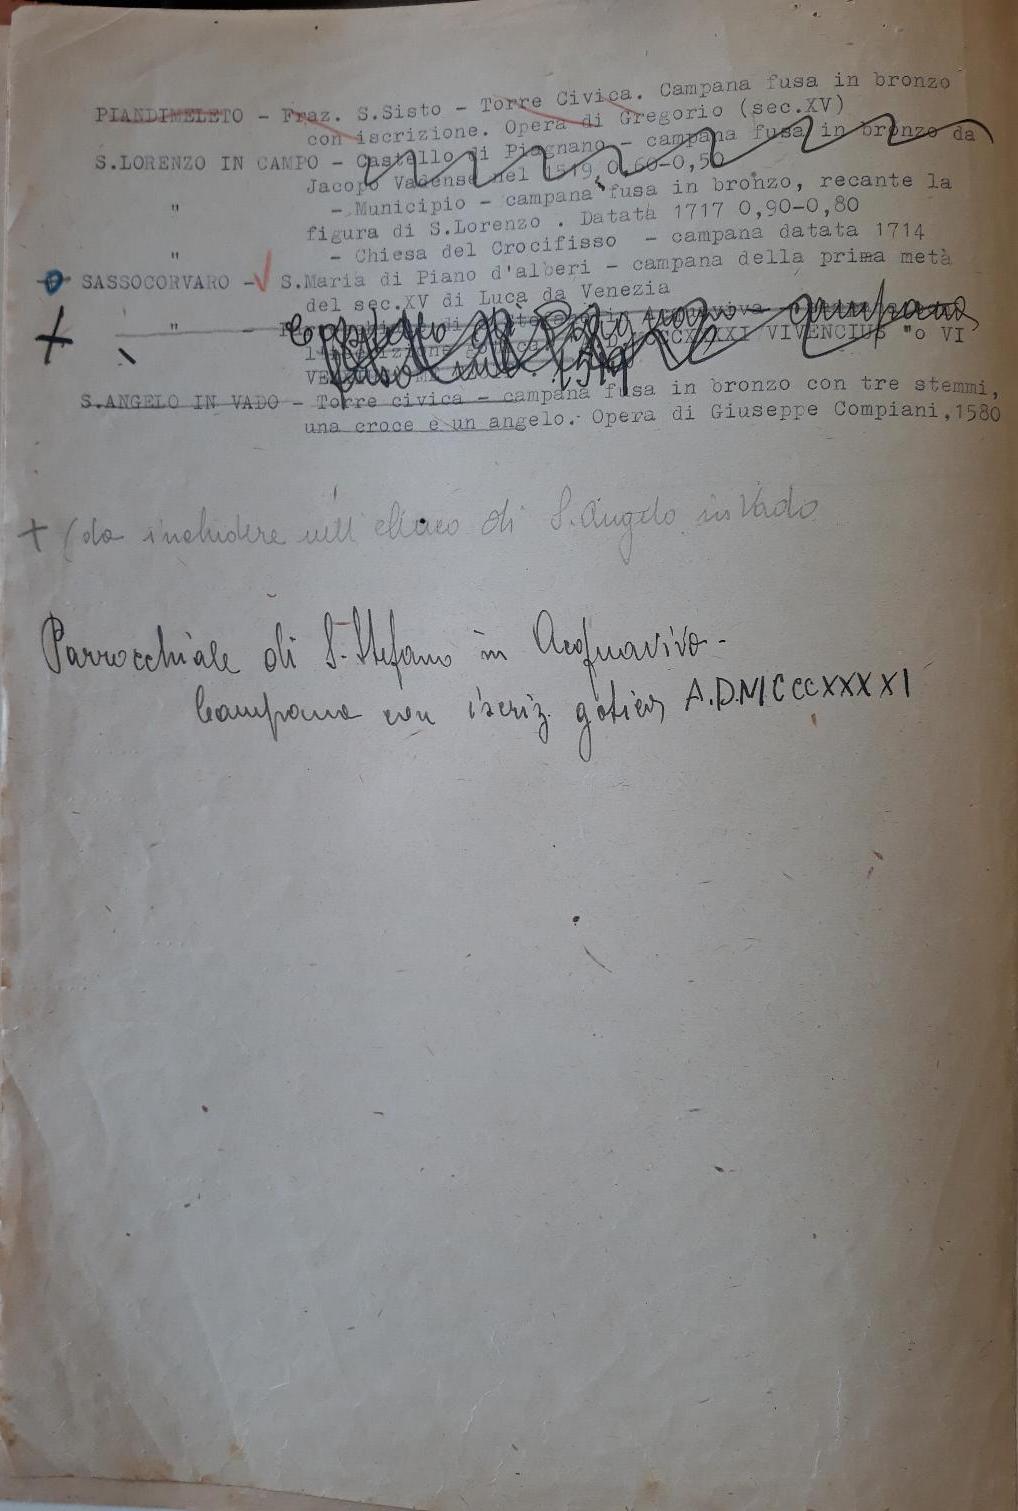 PIANDIMELETO - Fraz. S.Sisto - Torre Civica. Campana fusa in bronzo
con iscrizione. Opera di Gregorio (sec.XV)
S.LORENZO IN CAMPO - Castello di Piagnano - campana fusa in bronzo da
Jacopo Vadense nel 1519, 0,60-0,50
" - Municipio - campana fusa in bronzo, recante la
figura di S.Lorenzo . Datata 1717 0,90-0,80
" - Chiesa del Crocifisso - campana datata 1714
SASSOCORVARO - S.Maria di Piano d'alberi - campana della prima metà
del sec.XV di Luca da Venezia
+ " - campana
VIVENCIUS "o VI
1519
S.ANGELO IN VADO - Torre civica - campana fusa in bronzo con tre stemmi,
una croce e un angelo.- Opera di Giuseppe Compiani,1580
+ (da includere nell'elenco di S.Angelo in Vado
Parrocchiale di S.Stefano in Acquaviva -
Campana con iscriz. gotica A.D.MCCCXXXXI